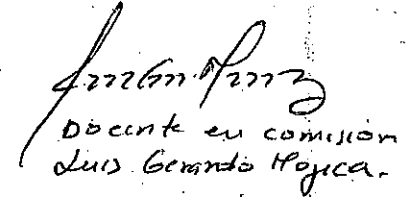 Docente en comisión
Luis Gerardo Mojica.